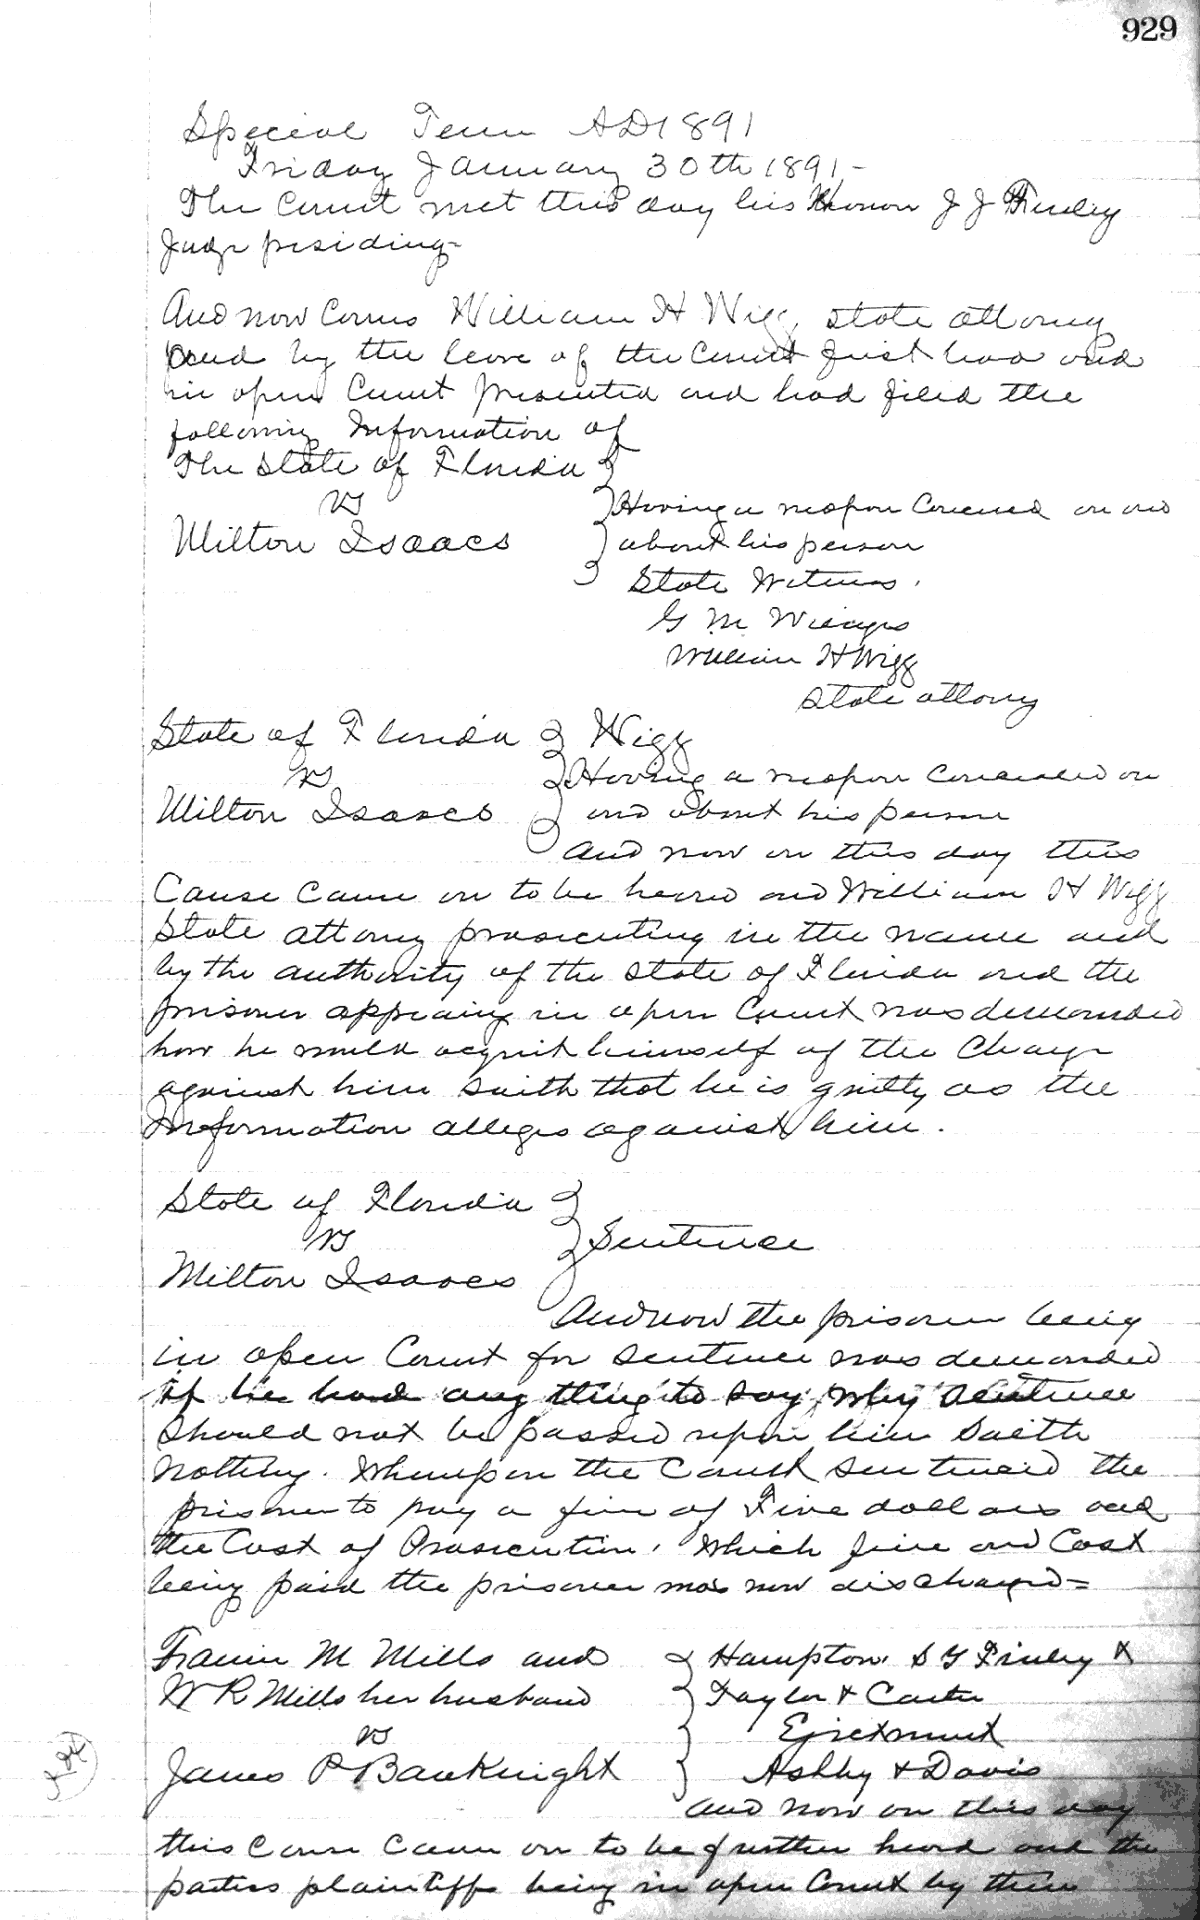 929
Special Term AD 1891
Friday January 30th 1891-
The Court met this day his Honor J J Finley
Judge presiding-
And now Comes William H Wigg state attorney
and by the leave of the Court first had and
in open Court presented and had filed the
following Information of
The State of Florida
vs
Having a weapon Concealed on and
Milton Isaacs
about his person
State Witness.
G M
William H Wigg
State attorny
State of Florida
Wigg
vs
Having a weapon Concealed on
Milton Isaacs
and about his person
And now on this day this
Cause Came on to be heard and William H Wigg
State attorny prosecuting in the name and
by the authority of the State of Florida and the
prisoner appearing in open Court was demanded
how he would acquit himself of the Charge
against him saith that he is guilty as the
Information alleges against him.
State of Florida
vs
Sentence
Milton Isaacs
And now the prisoner being
in open Court for sentence was demanded
if he had any thing to say, why sentence
should not be passed upon him saith
Nothing. Whereupon the Court sentenced the
prisoner to pay a fine of Five dollars and
the Cost of Prosecution. Which fine and Cost
being paid the prisoner was now discharged=
M Mills and
Hampton, S G Finley &
W R Mills her husband
Taylor & Carter
vs
Ejectment
James P BauKnight
Ashby & Davis
And now on this day
this Cause Came on to be further heard and the
parties plaintiffs being in open Court by their